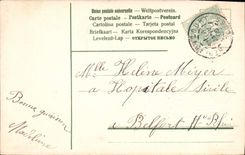 Union postale universelle – Weltpostverein.
Carte postale – Postkarte – Postcard
Cartolina postale – Tarjeta postal
Briefkaart – Karta Korespondencyjna
Levelezö-Lap – ОТКРЫТОЕ ПИСЬМО
Mlle Helene Meyer
a Hopitale
a Belfort
Bonne guérison
Madeleine